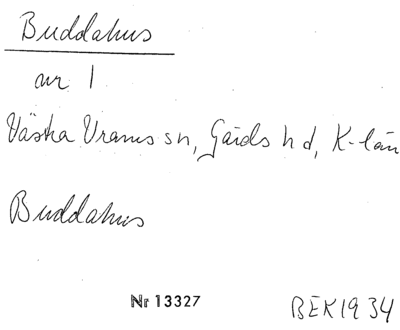 Buddahus
nr 1
Västra Vrams sn, Gärds hd, K-län
Buddahus
Nr 13327
BEK 1934